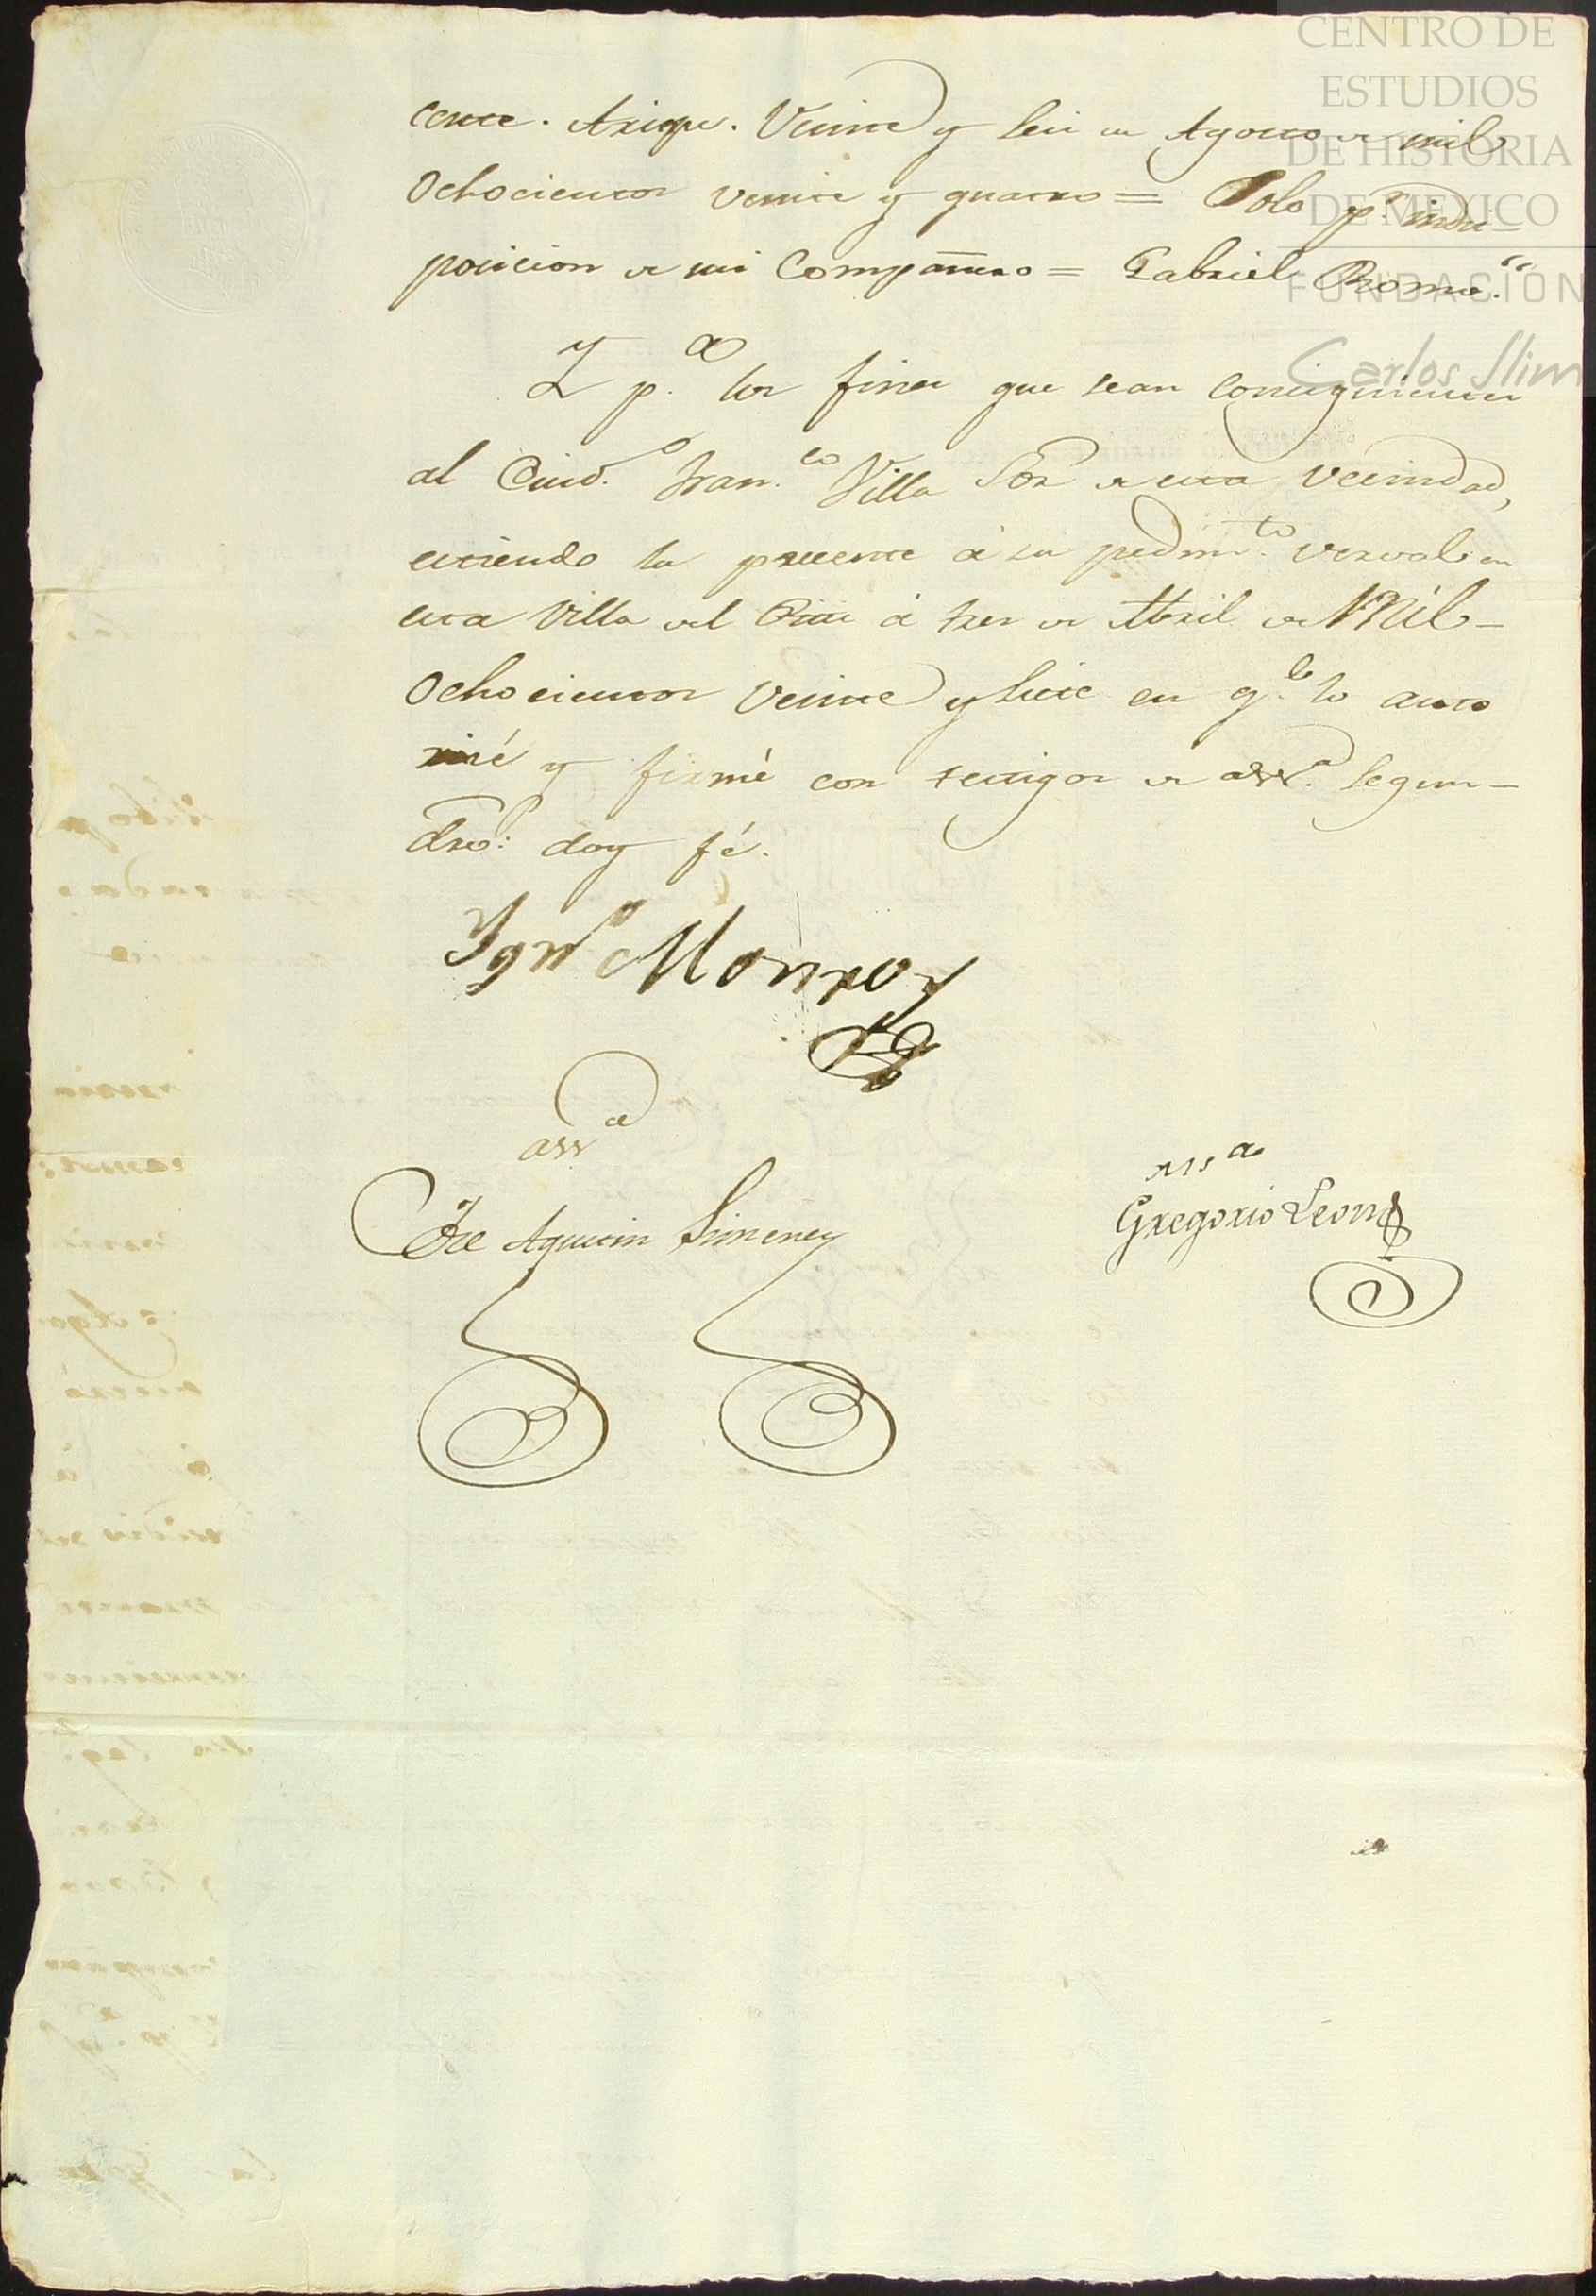 CENTRO DE
ESTUDIOS
DE HISTORIA
DE MEXICO
FUNDACIÓN
Carlos Slim
Veinte y seis de Agosto de mil
Ochocientos veinte y quatro = Solo pr. indis-
posicion de mi Compañero = Gabriel
Y pa. los fines que sean consiguientes
al Ciud.o Fran.co Villa Sor de esta vecindad,
estiendo la presente á su pedim.to verval en
esta Villa del á tres de Abril de Mil-
Ochocientos Veinte y siete en q.e lo auto
risé y firmé con testigos de assa. segun-
dro: doy fé.
Ygno Monroy
assa
Jose Agustin Simenez
assa
Gregorio Leon